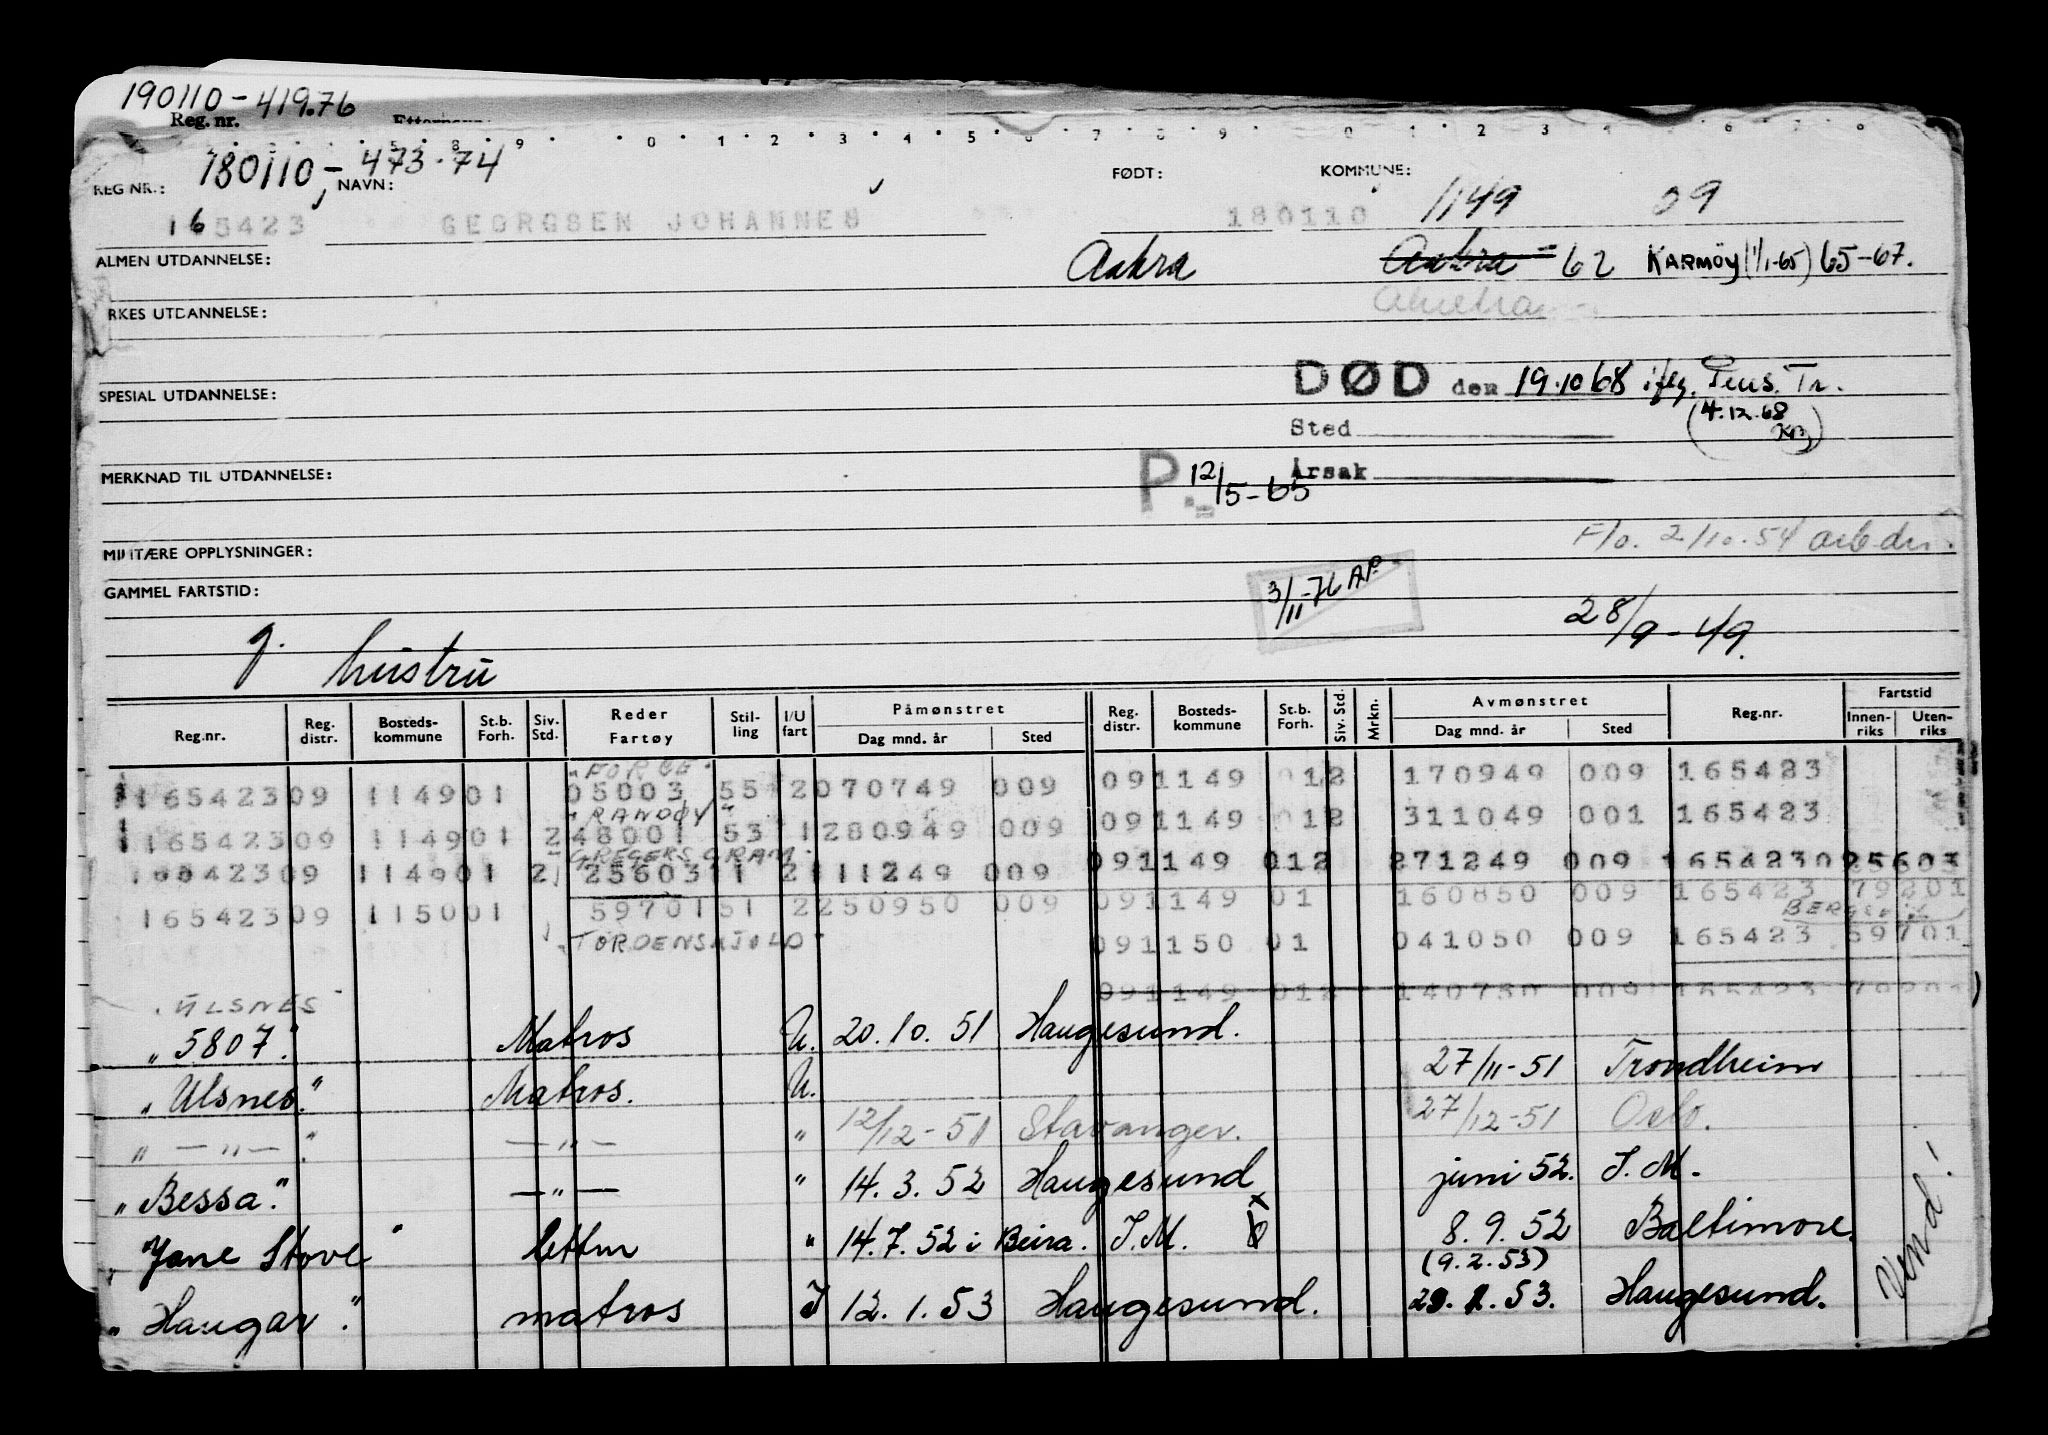 190110-419.76
Reg. nr.
180110,- 473.74
REG NR.: NAVN: FØDT: KOMMUNE:
165423 GEORGSEN JOHANNES 180110 1149 09
ALMEN UTDANNELSE: Aakra Aakra 62 KARMØY (1/1-65) 65-67.
RKES UTDANNELSE:
DØD den 19.10 68 iflg. Pens. Tr.
SPESIAL UTDANNELSE: (4.12.68
Sted
MERKNAD TIL UTDANNELSE: P. 12/5-65 Årsak
MILITÆRE OPPLYSNINGER: F/o. 2/10.54
GAMMEL FARTSTID: 3/11-76 AP.
28/9-49.
g. hustru
Reg.nr. Reg. distr. Bosteds-kommune St.b. Forh. Siv. Std. Reder Fartøy Stil-ling I/U fart Påmønstret Dag mnd. år Sted Reg. distr. Bosteds-kommune St.b. Forh. Siv. Std. Mrkn. Avmønstret Dag mnd. år Sted Reg.nr. Fartstid Innen-riks Uten-riks
16542309 114901 05003 55 2070749 009 091149 012 170949 009 165423
"RANDØY"
16542309 114901 248001 53 1280949 009 091149 012 311049 001 165423
"GREGERS GRAM"
16542309 114901 2 25603 1 2111249 009 091149 012 271249 009 165423025603
16542309 115001 5970151 2250950 009 091149 01 160850 009 165423 79201
"TORDENSKJOLD" 091150 01 041050 009 165423 59701
091149 012 140750 009 165423 79201
"ULSNES"
"5807." Matros U. 20.10.51 Haugesund.
27/11-51 Trondheim
"Ulsnes." Matros. U.
" — " — " — " — " 12/12-51 Stavanger. 27/12-51 Oslo.
"Bessa." — " — " 14.3.52 Haugesund juni 52. I.M.
"Jane Stove" lettm " 14.7.52 i Beira. I.M. 8.9.52 Baltimore.
(9.2.53)
"Haugar." matros I 12.1.53 Haugesund. 29.1.53. Haugesund.
Vend!